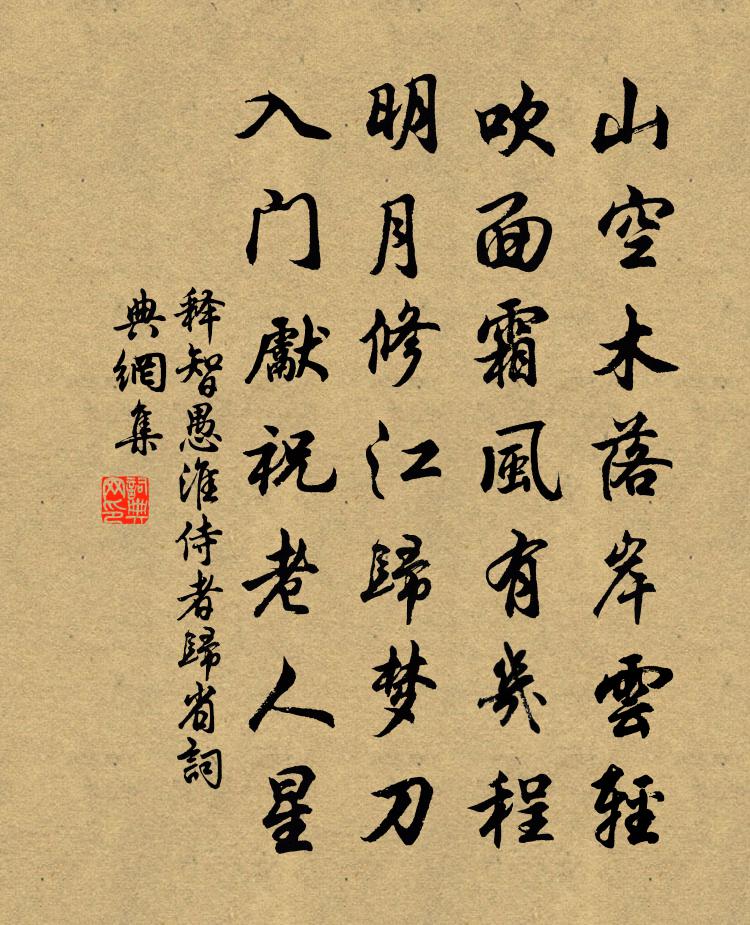 山空木落岸雲輕
吹面霜風有幾程
明月修江歸梦刀
入门獻祝老人星
释智愚淮侍者歸省詞
典網集
詞典
网印